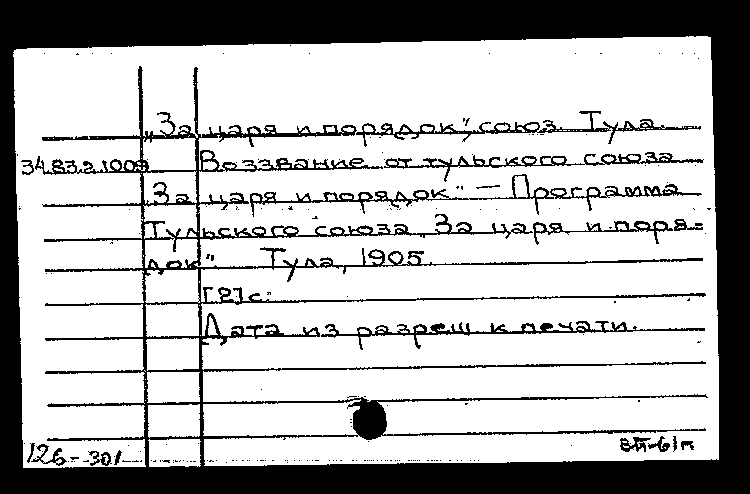 „За царя и порядок", союз. Тула.
34.83.2.1009 Воззвание от тульского союза
За царя и порядок." — Программа
Тульского союза „За царя и поря=
док". Тула, 1905.
[2]с.
Дата из разреш к печати.
126-301